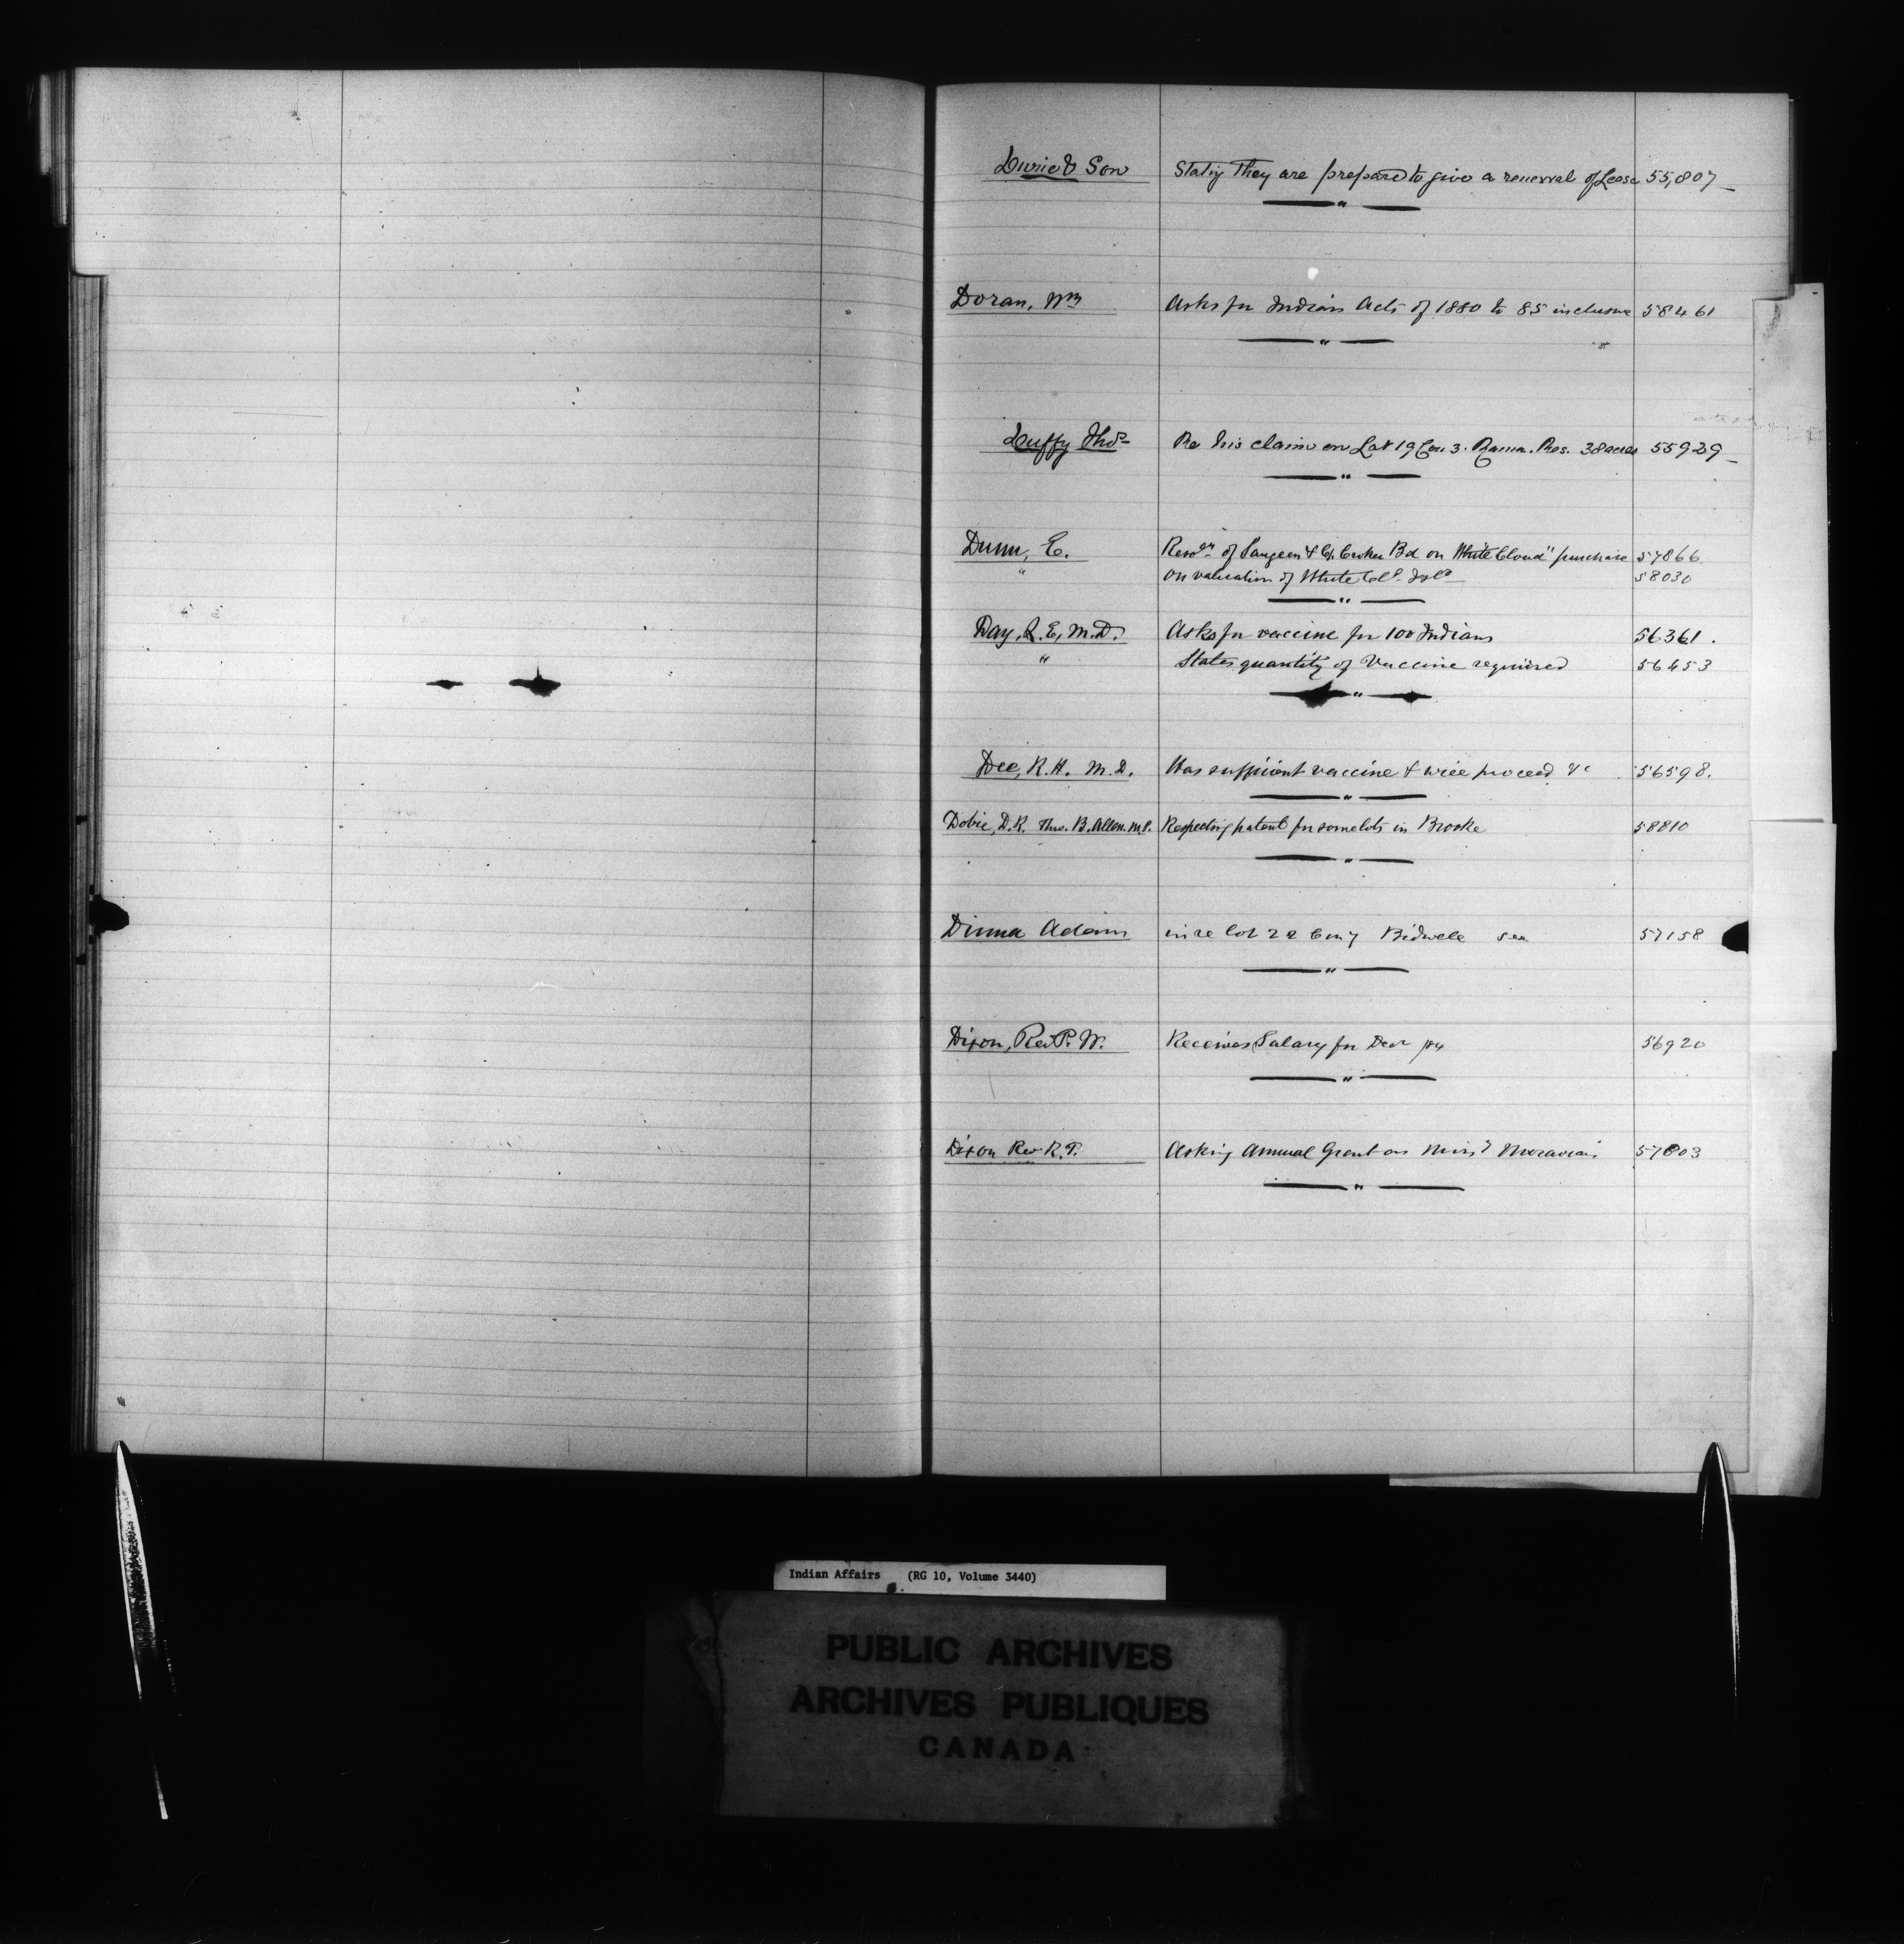 Durie & Son Stating They are prepared to give a renewal of Lease 55,807
Doran, Wm Asks for Indian Acts of 1880 to 85 inclusive 58461
Duffy Thos Re his claim on Lot 19 Con 3. Rama. Res. 38 acres 55929
Dunn, E. of Saugeen & C. Croker Bd on "White Cloud" purchase 57866
" on valuation of White Cld. Isld 58030
Day, E, M.D. Asks for vaccine for 100 Indians 56361.
" States quantity of Vaccine required 56453
Dee, R.H. M.D. Has sufficient vaccine & will proceed &c 56598.
Dobie, D.R. Thro. B. Allen. M.P. Respecting patent for some lots in Brooke 58810
Adam in re lot 22 Con 7 Bidwell see 57158
Dixon, Rev P. W. Receives Salary for Decr /84 56920
Dixon Rev R. T. Asking Annual Grant as 57803
Indian Affairs (RG 10, Volume 3440)
PUBLIC ARCHIVES
ARCHIVES PUBLIQUES
CANADA